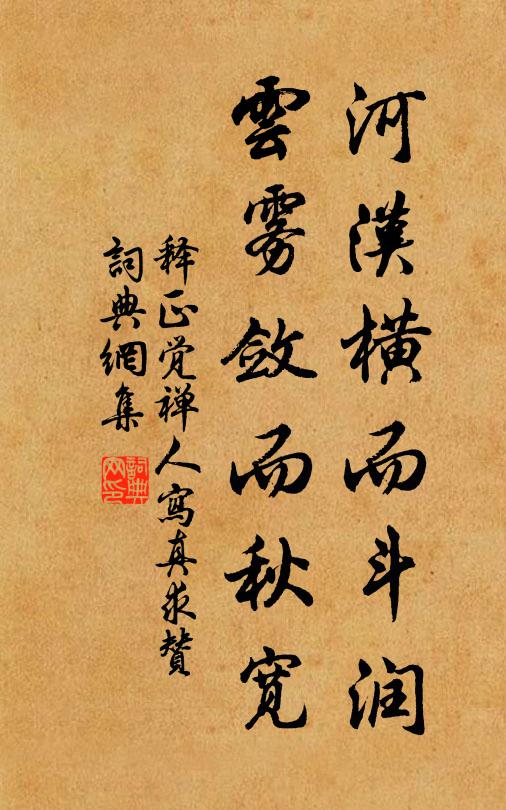 河漢橫而斗润
雲雾斂而秋宽
释正觉禅人寫真求贊
詞典網集
詞典网印